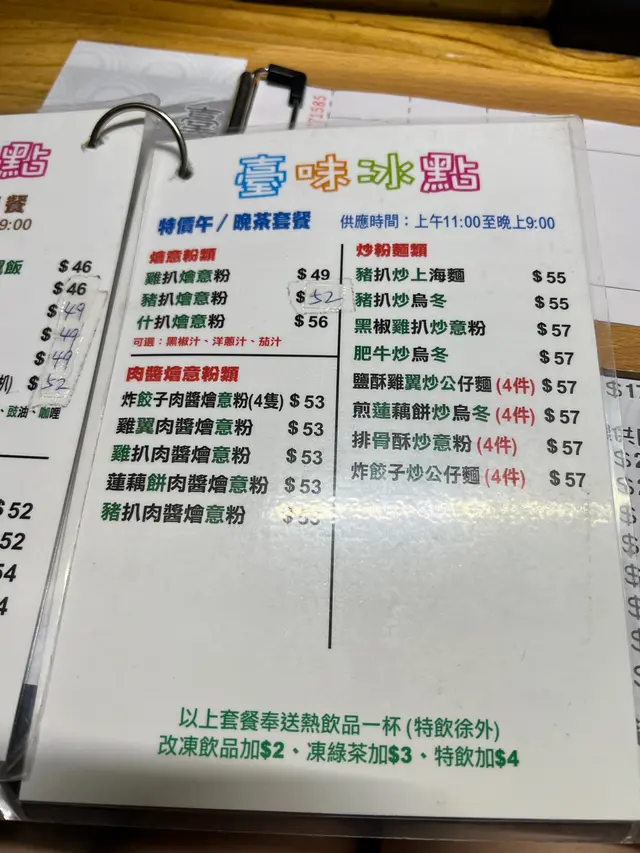 點
餐
9:00
飯 $46
$46
$49
$49
$49
扒) $52
、豉油、咖喱
$52
52
54
4
71585
臺味冰點
特價午/晚茶套餐 供應時間：上午11:00至晚上9:00
燴意粉類
雞扒燴意粉 $49
豬扒燴意粉 $52
什扒燴意粉 $56
可選：黑椒汁、洋蔥汁、茄汁
肉醬燴意粉類
炸餃子肉醬燴意粉(4隻) $53
雞翼肉醬燴意粉 $53
雞扒肉醬燴意粉 $53
蓮藕餅肉醬燴意粉 $53
豬扒肉醬燴意粉 $53
炒粉麵類
豬扒炒上海麵 $55
豬扒炒烏冬 $55
黑椒雞扒炒意粉 $57
肥牛炒烏冬 $57
鹽酥雞翼炒公仔麵(4件) $57
煎蓮藕餅炒烏冬(4件) $57
排骨酥炒意粉(4件) $57
炸餃子炒公仔麵(4件) $57
以上套餐奉送熱飲品一杯(特飲徐外)
改凍飲品加$2、凍綠茶加$3、特飲加$4
$17